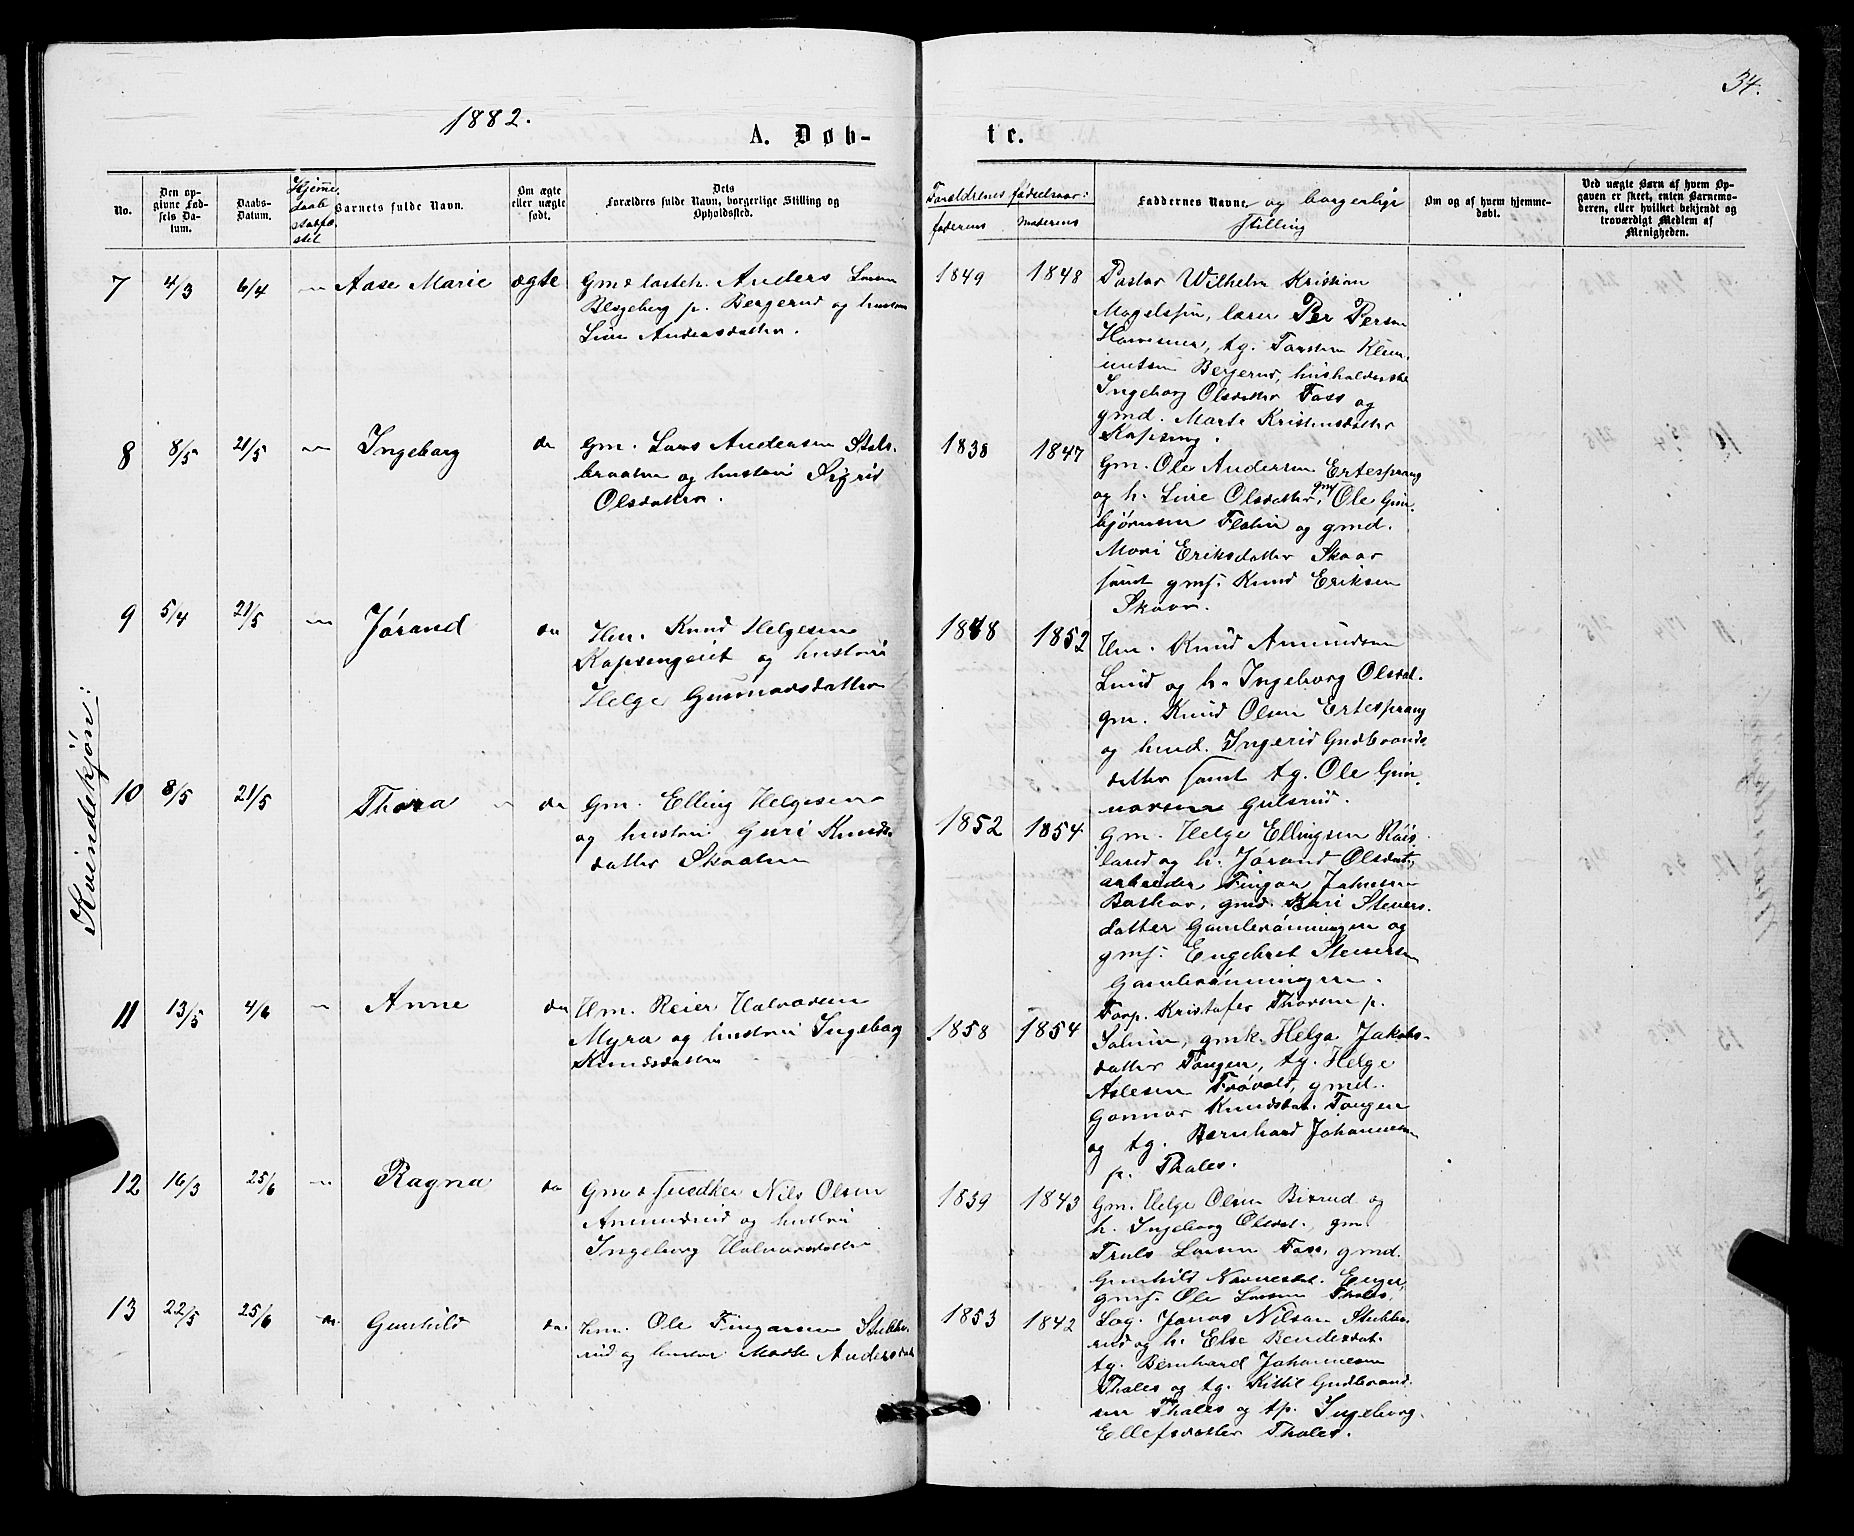 34.
1882.
A. Døb-
te.
Kvindekjøn:
No.
Den op-
givne Fød-
sels Da-
tum.
Daabs-
Datum.
Hjemme-
daab
Barnets fulde Navn.
Om ægte
eller uægte
født.
Dets
Forældres fulde Navn, borgerlige Stilling og
Opholdssted.
Forældrenes fødselsaar:
faderens
moderens
Faddernes Navne og borgerlige
stilling
Om og af hvem hjemme-
døbt.
Ved uægte Børn af hvem Op-
gaven er skeet, enten Barnemo-
deren, eller hvilket bekjendt og
troværdigt Medlem af
Menigheden.
7 4/3 6/4 " Aase Marie ægte
Gm. Anders Larsen
p. Bergerud og hustru
Live Andersdatter.
1849 1848
Pastor Wilhelm Kristian
Magelssen, lærer Per Persen
tg. Torsten Klem-
metsen Bergerud, husholderske
Ingeborg Olsdatter Foss og
gmd. Marte Kristensdatter
Kapseng.
8 8/5 21/5 " Ingeborg do
Gm. Lars Andersen Stils-
braaten og hustru Sigrid
Olsdatter.
1838 1847
Gm. Ole Andersen Ertesprang
og h. Live Olsdatter, gmf Ole Gun-
bjørnsen Flatin og gmd.
Mari Eriksdatter Skaar
samt gmf. Knud Eriksen
Skaar.
9 5/4 21/5 " Jørand do
Hm. Knud Helgesen
Kapsengeiet og hustru
Helge Gunnarsdatter
1848 1852
Hm. Knud Amundsen
Lund og h. Ingeborg Olsdat.
gm. Knud Olsen Ertesprang
og hmd. Ingerid Gudbrands-
datter samt tg. Ole Gun-
narsen Gulsrud.
10 8/5 21/5 Thora " do
Gm. Elling Helgesen
og hustru Guri Knuds-
datter Skaaten
1852 1854
Gm. Helge Ellingsen
og h. Jørand Olsdat,
arbeider Fingar Johnsen
gmd. Kari Steners-
datter Gamlerønningen og
gmf. Engebret Stenersen
Gamlerønningen.
11 13/5 4/6 " Anne do
Hm. Reier Halvorsen
Myra og hustru Ingeborg
Knudsdatter
1858 1854
Forp. Kristofer Thorsen p.
gmk. Helga Jakobs-
datter Tangen, tg. Helge
Aslesen Trøvolt, gmd.
Gonnor Knudsdat. Tangen
og tg. Bernhard Johannesen
p. Thales.
12 16/3 25/6 " Ragna do
Gm & snedker Nils Olsen
Amundrud og hustru
Ingeborg Halvorsdatter
1839 1843
Gm. Helge Olsen Bixrud og
h. Ingeborg Olsdat. gm
Truls Larsen Foss, gmd.
Gunhild Enger,
gmf. Ole Larsen Thales.
13 22/5 25/6 do. Gunhild do.
Hm. Ole Fingarsen Stubbe-
rud og hustru Marte Andersdat
1853 1842
Jonas Nilsen Stubbe-
rud og h. Else Bendixdat.
tg. Bernhard Johannesen
Thales og tg. Kittil Gudbrand-
sen Thales og tp. Ingeborg
Ellefsdatter Thales.